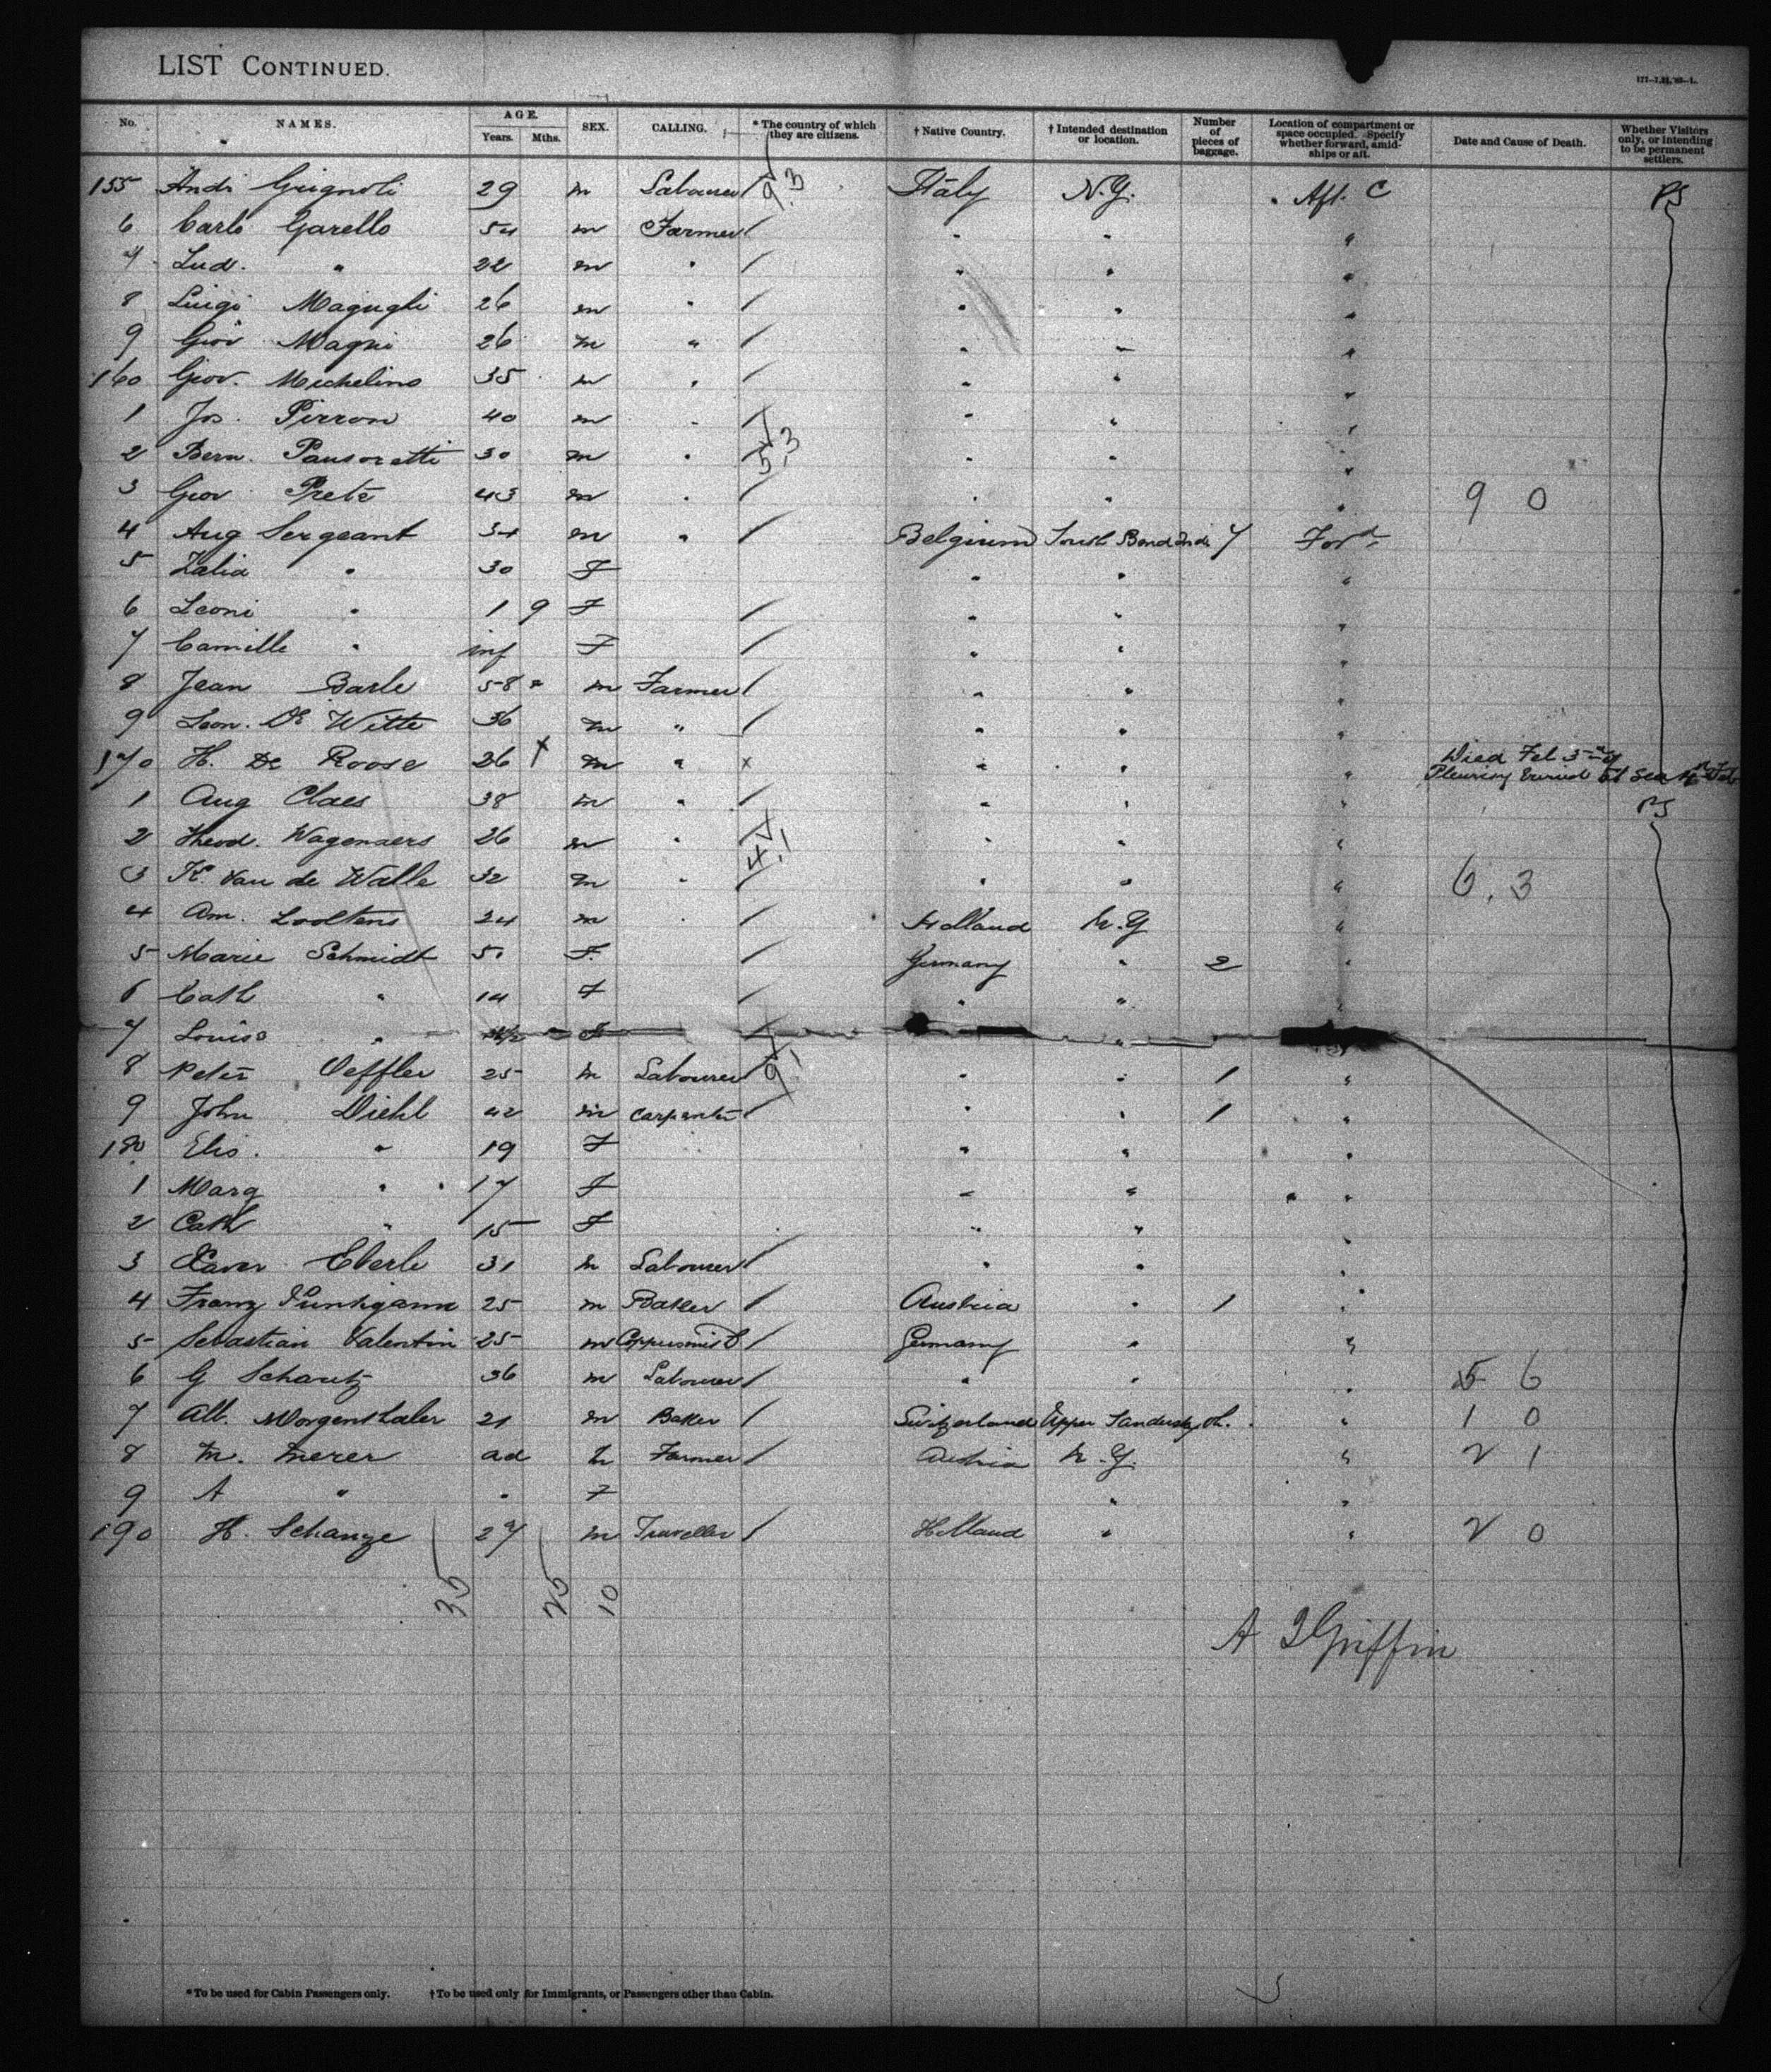 LIST CONTINUED.
No. NAMES. AGE. Years. Mths. SEX. CALLING. * The country of which they are citizens. † Native Country. † Intended destination or location. Number of pieces of baggage. Location of compartment or space occupied. Specify whether forward, amidships or aft. Date and Cause of Death. Whether Visitors only, or intending to be permanent settlers.
155 Andr Grignoli 29 m Labourer / 9.3 Italy N.Y. Aft. C PS
6 Carlo Garello 54 m Farmer / " " "
7 Lud. " 22 m " / " " "
8 Luigi Magugli 26 m " / " " "
9 Giov Magni 26 m " / " " "
160 Giov. Michelino 35 m " / " " "
1 Jos. Pirron 40 m " / " " "
2 Bern. Pansoretti 30 m " / 5,3 " " "
3 Giov Prete 43 m " / " " " 9 0
4 Aug Sergeant 34 m " / Belgium South Bend Ind. 7 Ford
5 Zalia " 30 F " " "
6 Leoni " 1 9 F / " " "
7 Camille " inf F / " " "
8 Jean Barle 58 m Farmer / " " "
9 Leon. De Witte 36 m " / " " "
170 H. De Roose 26 + m " x " " " Died Feb 3rd Pleurisy buried at sea Feb
1 Aug Claes 38 m " / " " " PS
2 Theod. Wagenaers 26 m " / 4,1 " " "
3 K. Van de Walle 32 m " / " " " 6.3
4 Am. Looltens 24 m " / Holland N.Y "
5 Marie Schmidt 50 F / Germany " 2 "
6 Cath " 14 F / " " "
7 Louisa " F / "
8 Peter Oeffler 25 m Labourer / 9,1 " " 1 "
9 John Diehl 42 m Carpenter / " " 1 "
180 Elis. " 19 F " " "
1 Marg " 17 F " " "
2 Cath " 15 F " " "
3 Xaver Eberle 31 m Labourer / " " "
4 Franz Puntigamm 25 m Baker / Austria " 1 "
5 Sebastian Valentin 25 m Coppersmith / Germany " "
6 G Schantz 36 m Labourer / " " " 5 6
7 Alb. Morgenthaler 21 m Baker / Switzerland Upper Sandusky, Oh. " 1 0
8 M. Merer ad m Farmer / Austria N.Y. " 2 1
9 A " " F " "
190 H. Schanze 27 m Traveller / Holland " " 2 0
35 25 10
A J Griffin
* To be used for Cabin Passengers only. † To be used only for Immigrants, or Passengers other than Cabin.